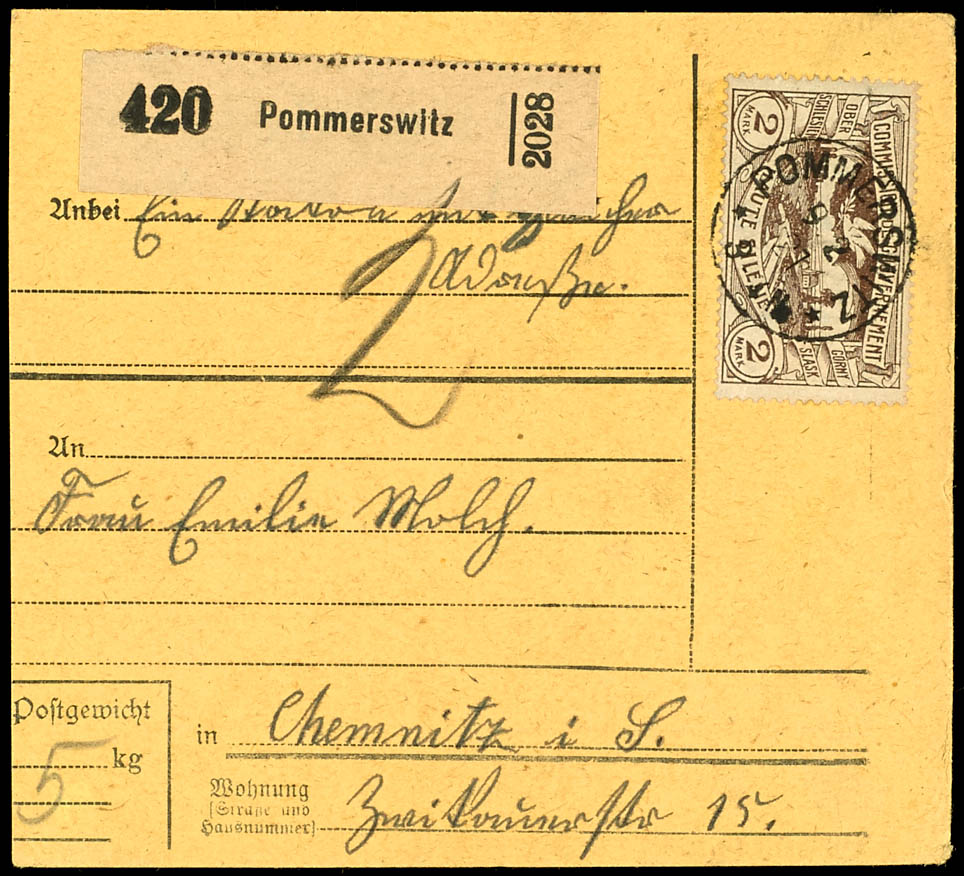 420 Pommerswitz 2028
Anbei Ein Karton mit gleicher
Adresse.
2
An
Frau Emilie Molch.
Postgewicht
5 kg
in Chemnitz i S.
Wohnung
(Straße und
Hausnummer)
Zwikauerstr 15.
2 MARK
OBER SCHLESIEN
COMMISSION DE GOUVERNEMENT
HAUTE SILESIE
GORNY SLASK
2 MARK
POMMERSWITZ